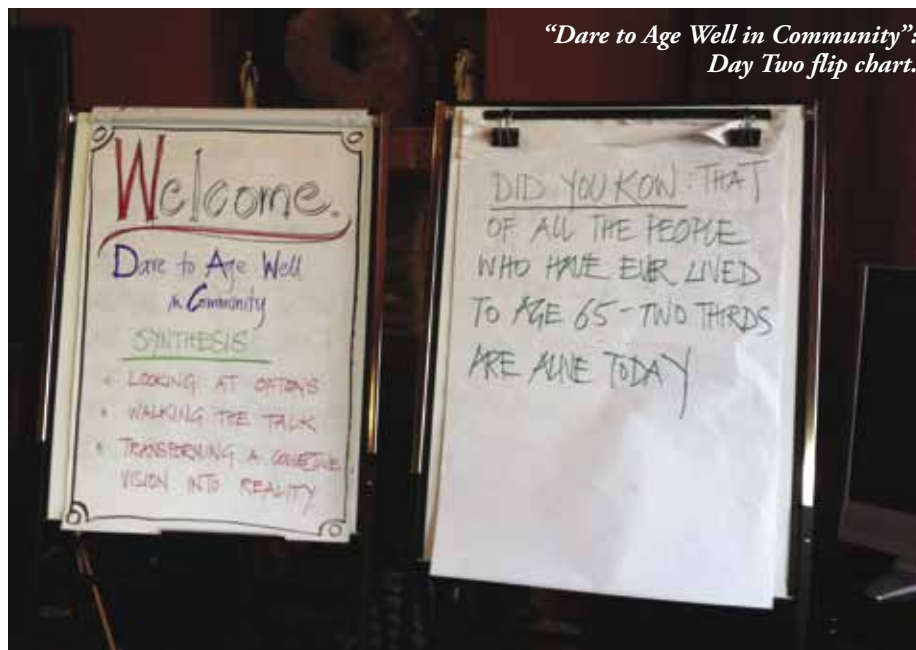 “Dare to Age Well in Community”:
Day Two flip chart.
Welcome.
Dare to Age Well
in Community
SYNTHESIS
• LOOKING AT OPTIONS
• WALKING THE TALK
• TRANSFORMING A COLLECTIVE
VISION INTO REALITY
DID YOU KOW: THAT
OF ALL THE PEOPLE
WHO HAVE EVER LIVED
TO AGE 65 - TWO THIRDS
ARE ALIVE TODAY